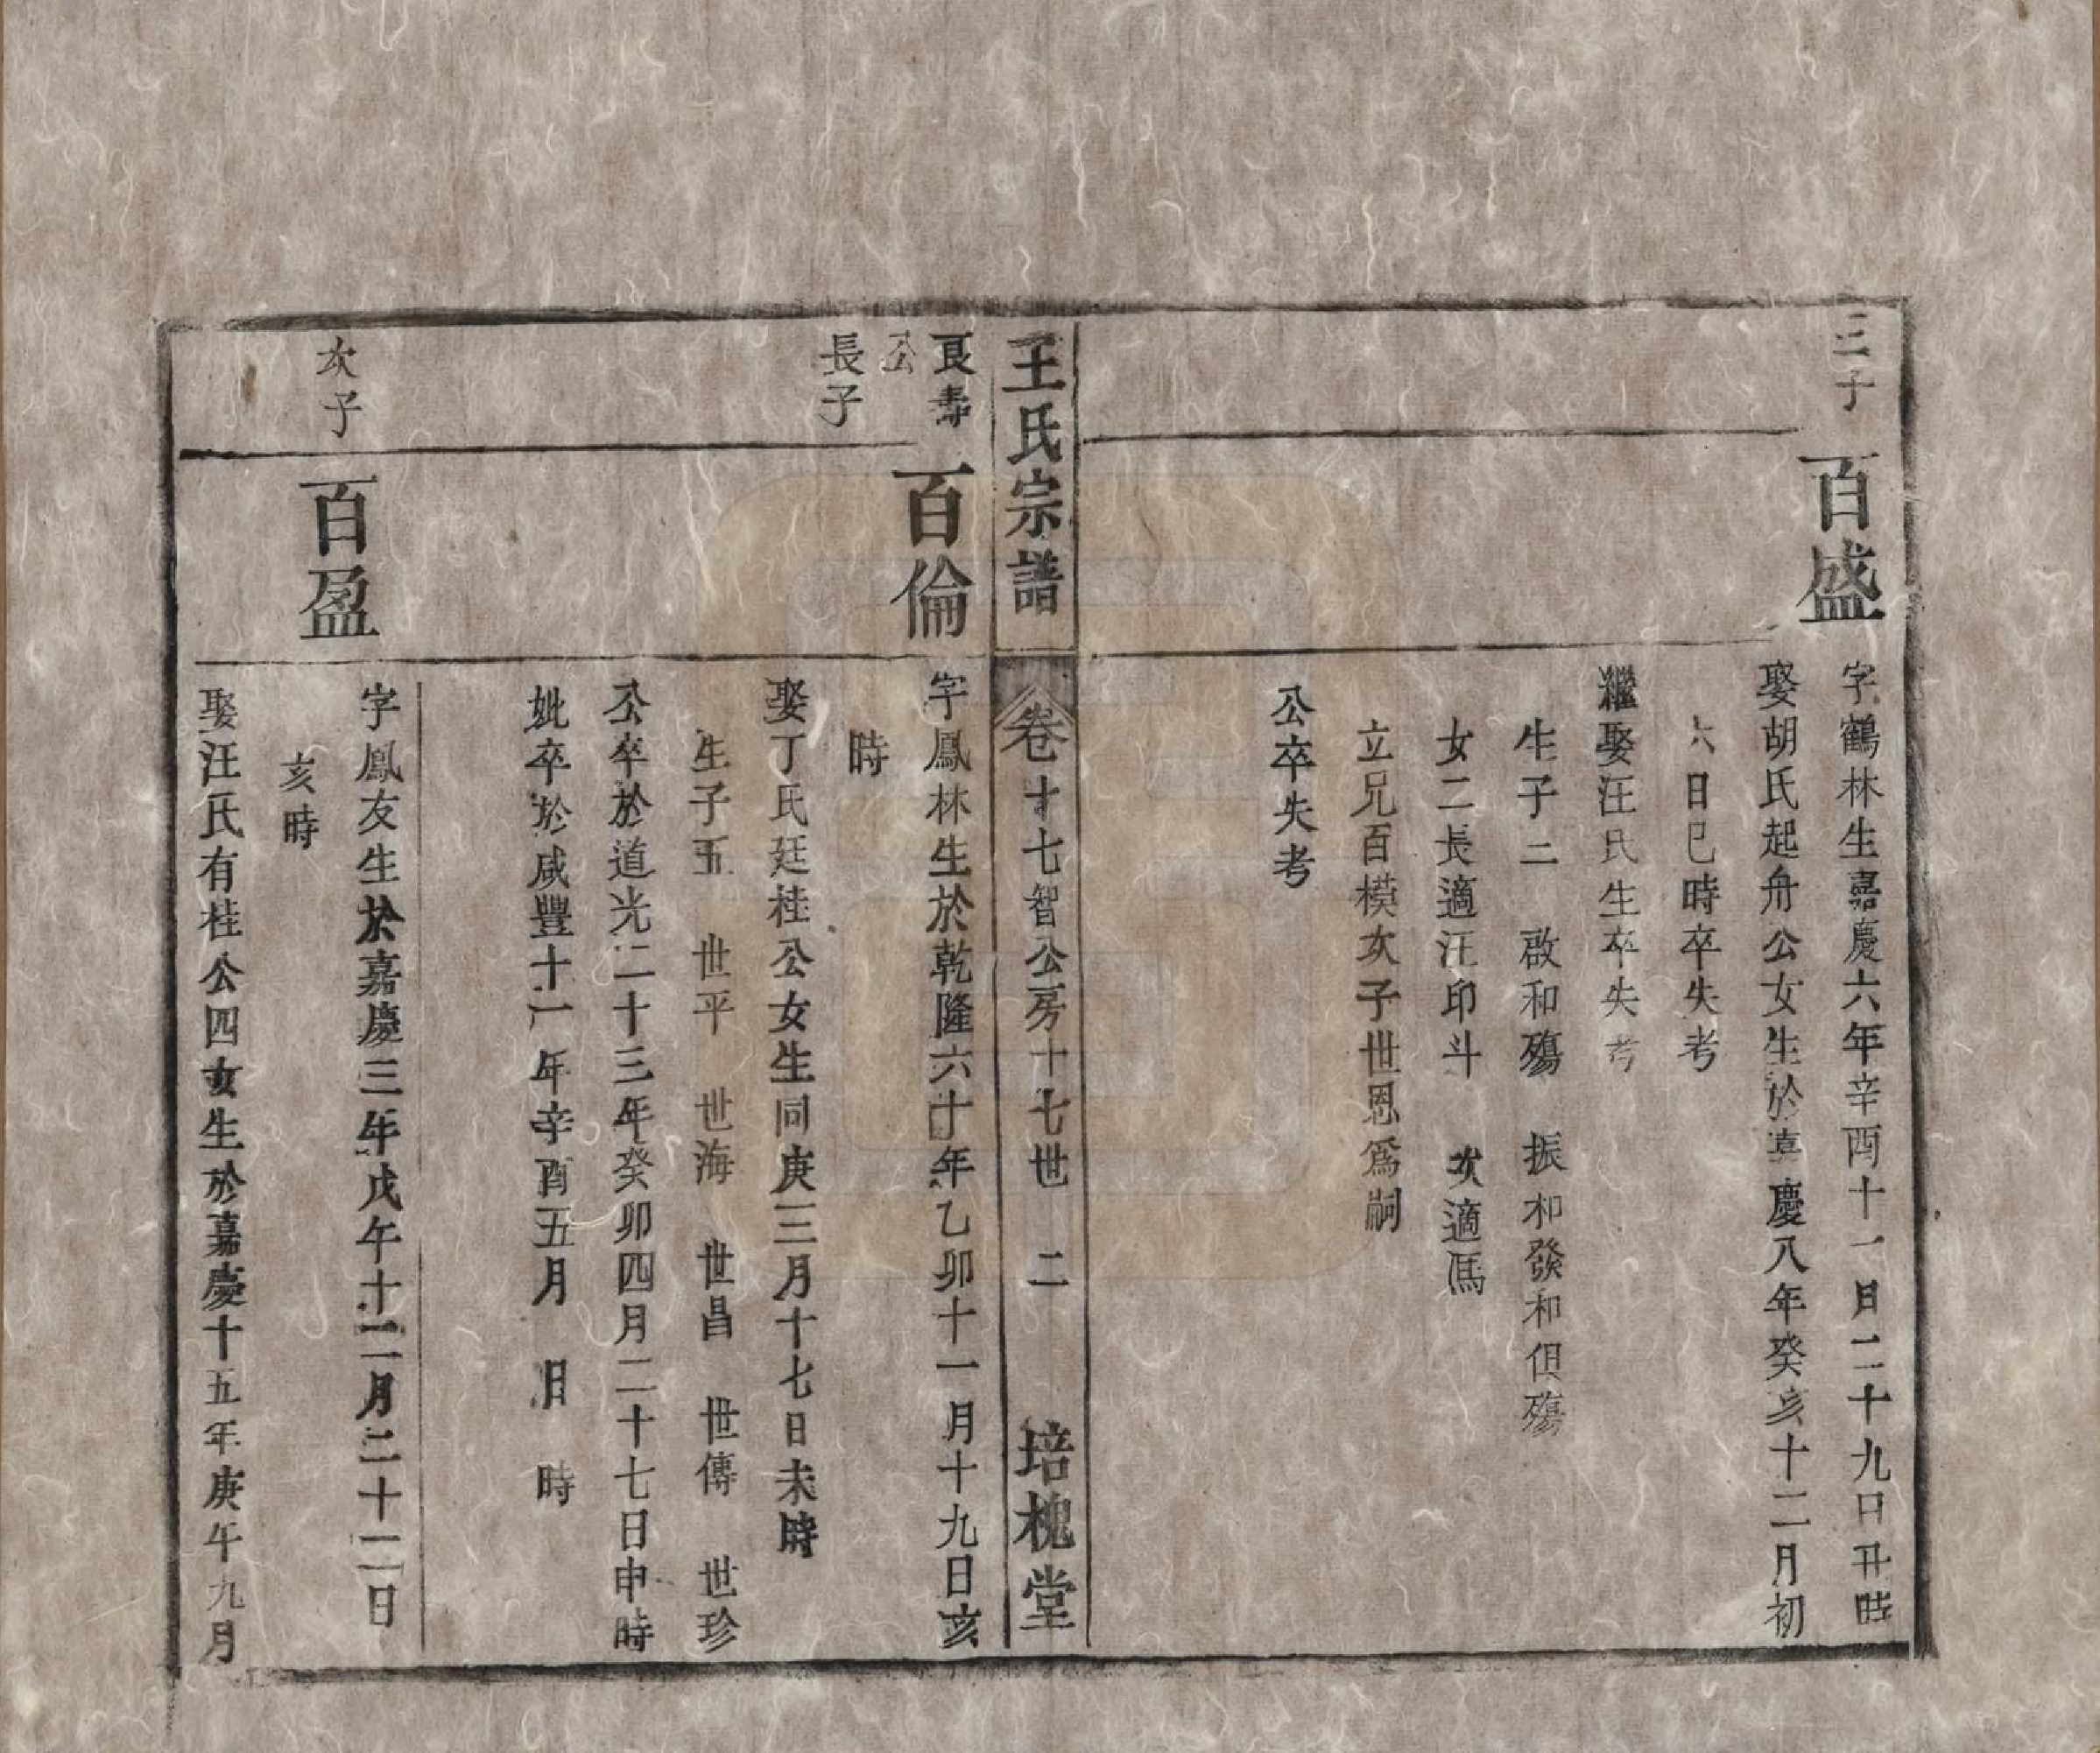 三子
百盛
字鶴林生嘉慶六年辛酉十一月二十九日丑時
娶胡氏起舟公女生於嘉慶八年癸亥十二月初
六日巳時卒失考
繼娶汪氏生卒失考
生子二 啟和殤 振和發和俱殤
女二長適汪印斗 次適馮
立兄百模次子世恩爲嗣
公卒失考
王氏宗譜 卷十七智公房十七世 二 培槐堂
良壽
公
長子
百倫
字鳳林生於乾隆六十年乙卯十一月十九日亥
時
娶丁氏廷桂公女生同庚三月十七日未時
生子五 世平 世海 世昌 世傳 世珍
公卒於道光二十三年癸卯四月二十七日申時
妣卒於咸豐十一年辛酉五月 日 時
次子
百盈
字鳳友生於嘉慶三年戊午十二月二十二日
亥時
娶汪氏有桂公四女生於嘉慶十五年庚午九月